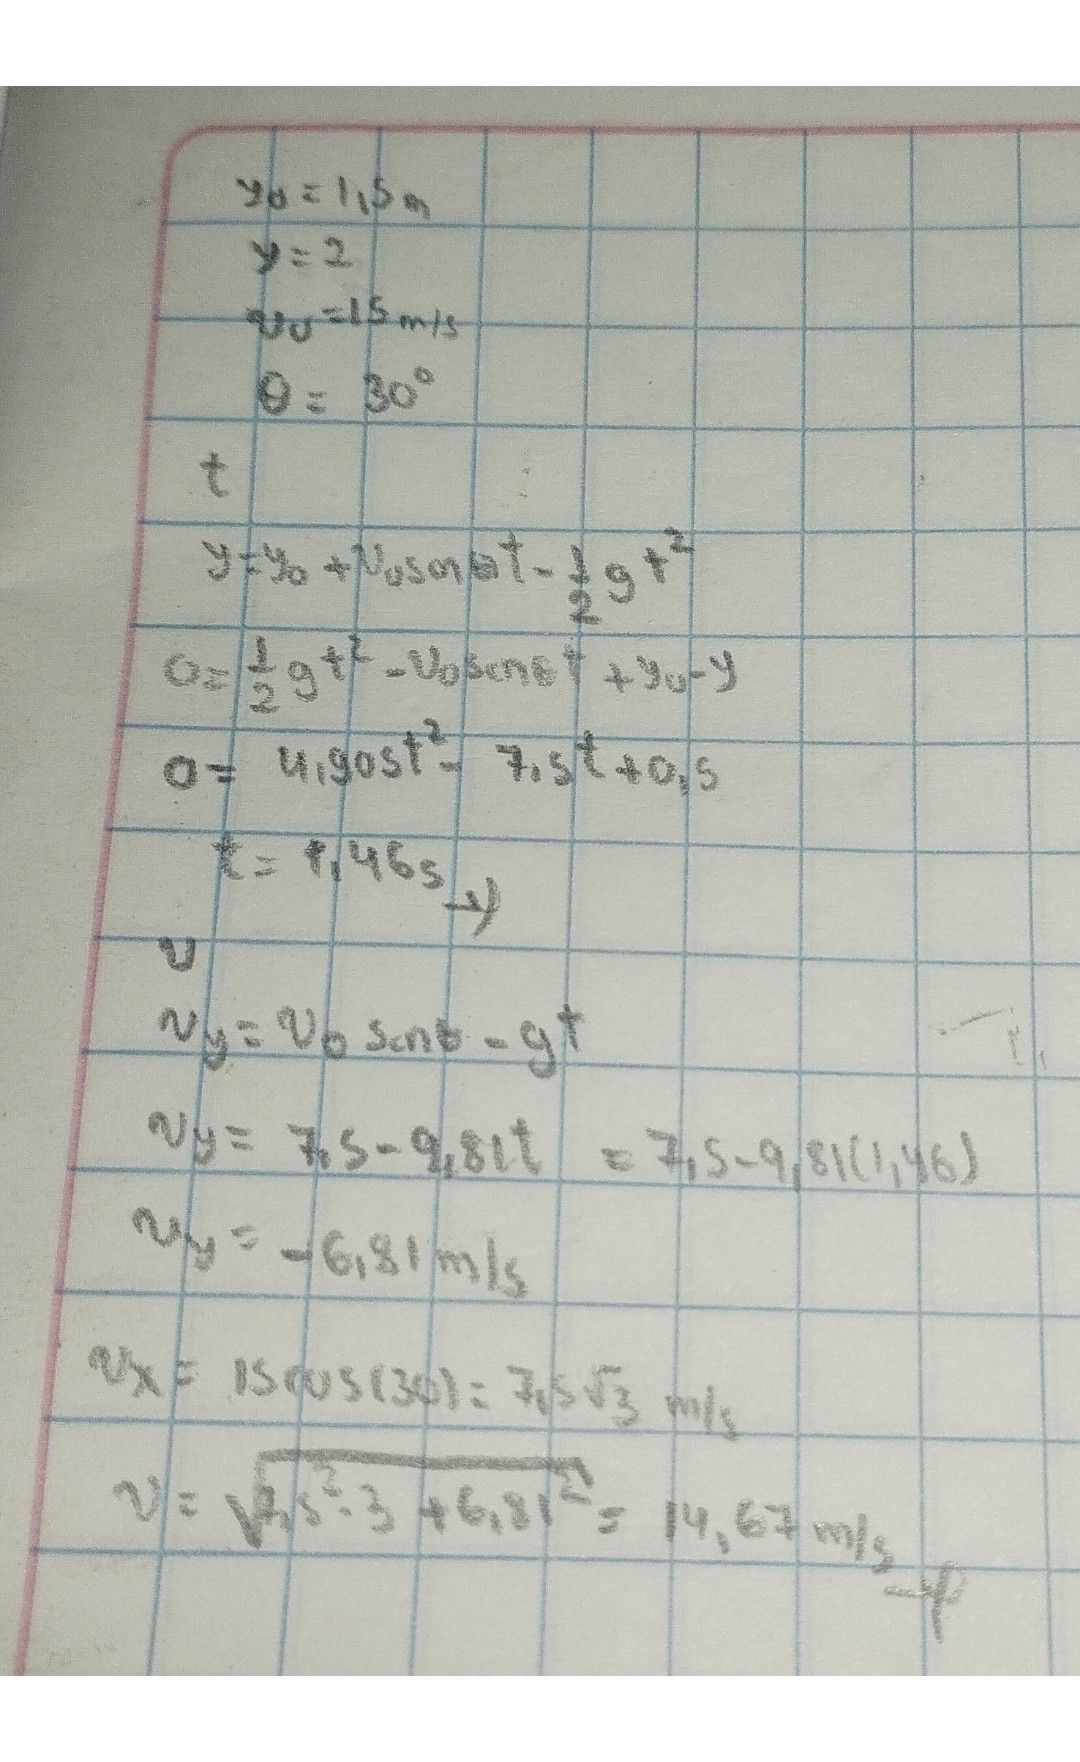 y₀ = 1,5m
y = 2
v₀ = 15 m/s
θ = 30°
t
y = y₀ + v₀ senθt - 1/2 gt²
0 = 1/2 gt² - v₀ senθt + y₀ - y
0 = 4,905t² - 7,5t + 0,5
t = 1,46s
v
vy = v₀ senθ - gt
vy = 7,5 - 9,81t = 7,5 - 9,81(1,46)
vy = -6,81 m/s
vx = 15 cos(30) = 7,5√3 m/s
v = √(7,5²·3 + 6,81²) = 14,67 m/s